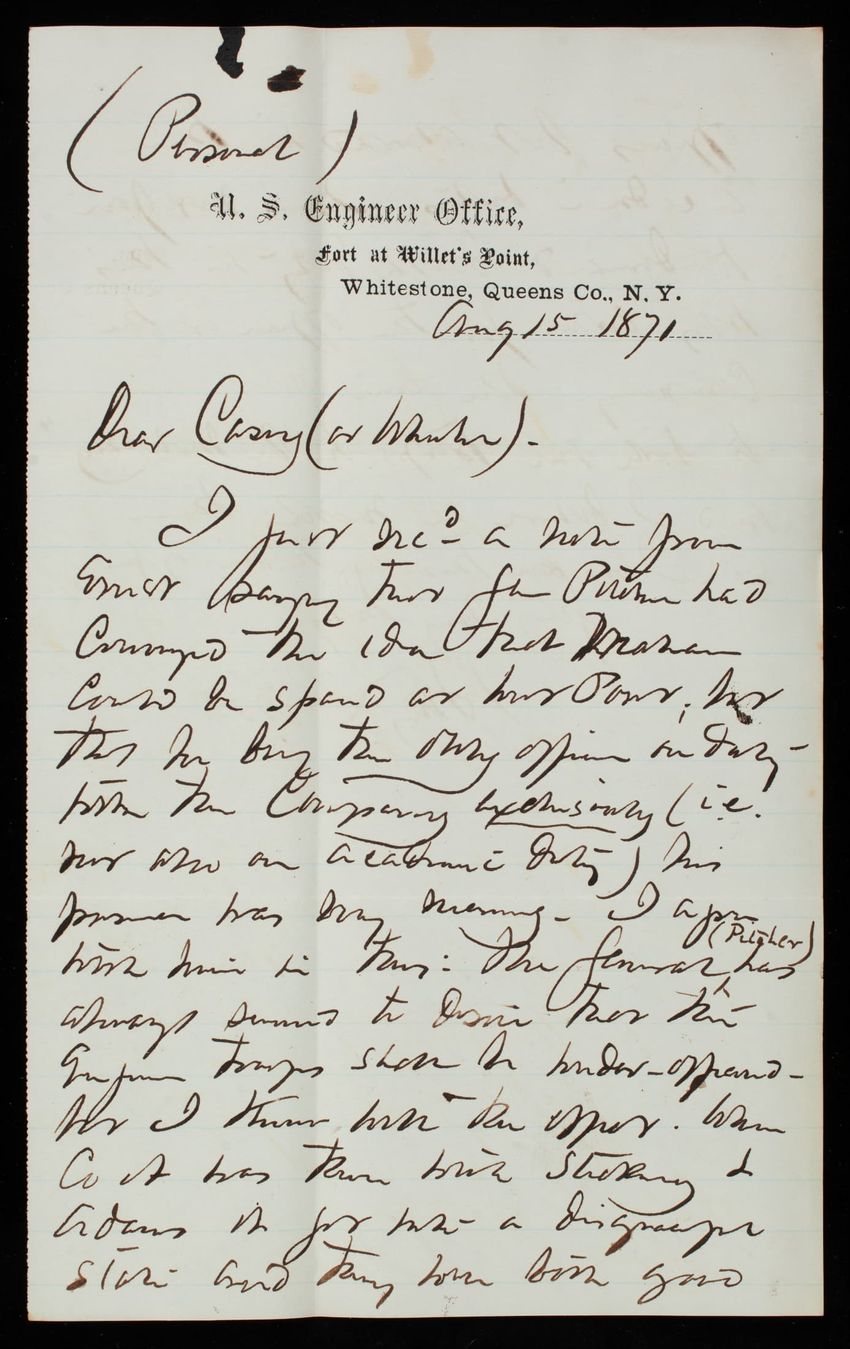 (Personal)
U. S. Engineer Office,
Fort at Willet's Point,
Whitestone, Queens Co., N. Y.
Aug 15 1871
Dear Casey (or Wheeler).-
I just recd a note from
Ernst saying that Gen Pitcher had
conveyed the idea that Mahan
could be spared at West Point; but
that he being the only officer on duty
with the Company exclusively (i.e.
not also on academic duty) his
presence was very necessary. I agree
with him in this: the General (Pitcher) has
always seemed to desire that the
Engineer troops shall be under-officered-
but I think with the effect. When
Co A was there with Stickney &
Adams it got into a disgraceful
state and they were both good